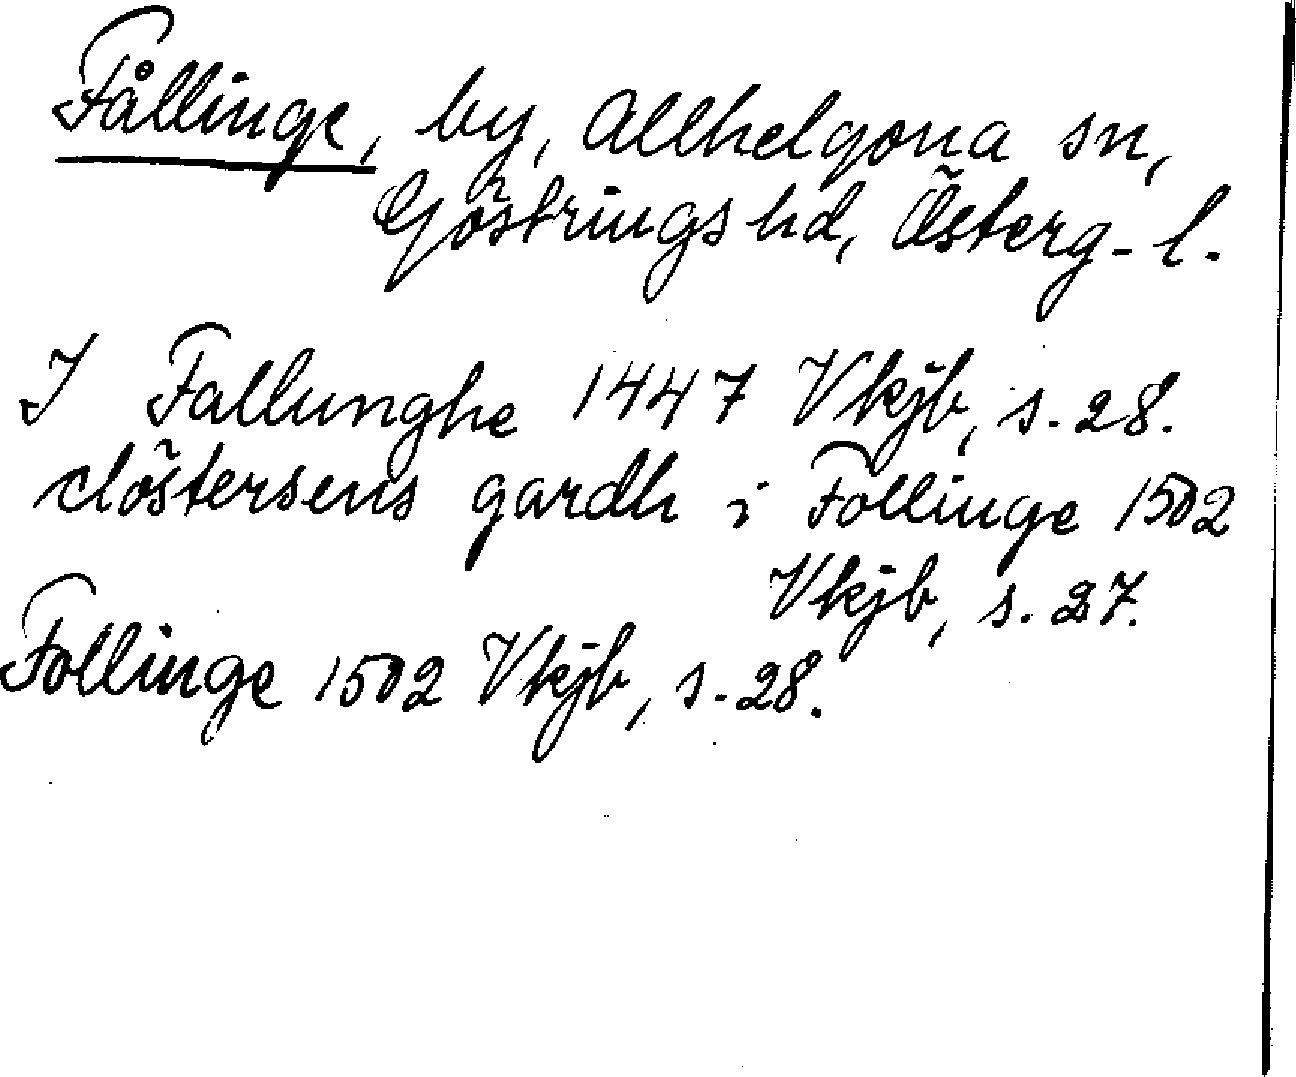 Fållinge, by, Allhelgona sn,
Göstrings hd, Österg-l.
I Fallunghe 1447 Vkjb, s. 28.
clöstersens gardh i Follinge 1502
Vkjb, s. 27.
Follinge 1502 Vkjb, s. 28.